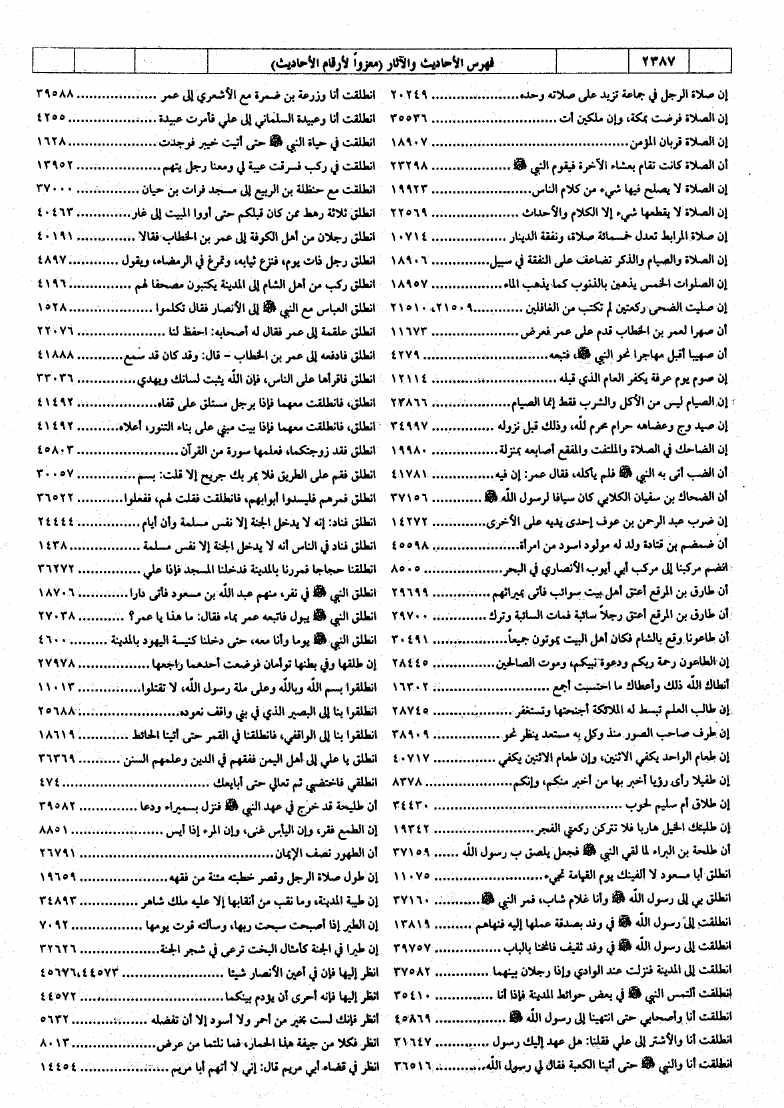 ٢٣٨٧
فهرس الأحاديث والآثار (معزواً لأرقام الأحاديث)
إن صلاة الرجل في جماعة تزيد على صلاته وحده ٢٠٢٤٩
إن الصلاة فرضت بمكة، وإن ملكين أت ٣٥٥٣٦
إن الصلاة قربان المؤمن ١٨٩٠٧
أن الصلاة كانت تقام بعشاء الآخرة فيقوم النبي ﷺ ٢٣٢٩٨
إن الصلاة لا يصلح فيها شيء من كلام الناس ١٩٩٢٣
إن الصلاة لا يقطعها شيء إلا الكلام والأحداث ٢٢٥٦٩
إن صلاة المرابط تعدل خمسمائة صلاة، ونفقة الدينار ١٠٧١٤
إن الصلاة والصيام والذكر تضاعف على النفقة في سبيل ١٨٩٠٦
إن الصلوات الخمس يذهبن بالذنوب كما يذهب الماء ١٨٩٥٧
إن صليت الضحى ركعتين لم تكتب من الغافلين ٢١٥٠٩، ٢١٥١٠
أن صهرا لعمر بن الخطاب قدم على عمر فعرض ١١٦٧٣
أن صهيبا أقبل مهاجرا نحو النبي ﷺ، فتبعه ٤٢٧٩
إن صوم يوم عرفة يكفر العام الذي قبله ١٢١١٤
إن الصيام ليس من الأكل والشرب فقط إنما الصيام ٢٣٨٦٦
إن صيد وج وعضاهه حرام محرم لله، وذلك قبل نزوله ٣٤٩٩٧
إن الضاحك في الصلاة والملتفت والمفقع أصابعه بمنزلة ١٩٩٨٠
أن الضب أتى به النبي ﷺ فلم يأكله، فقال عمر: إن فيه ٤١٧٨١
أن الضحاك بن سفيان الكلابي كان سيافا لرسول الله ﷺ ٣٧١٥٦
إن ضرب عبد الرحمن بن عوف إحدى يديه على الأخرى ١٤٢٧٢
أن ضمضم بن قتادة ولد له مولود اسود من امرأة ٤٥٥٩٨
انضم مركبنا إلى مركب أبي أيوب الأنصاري في البحر ٨٥٠٥
أن طارق بن المرقع أعتق أهل بيت سوائب فأتى بميراثهم ٢٩٦٩٩
أن طارق بن المرقع أعتق رجلاً سائبة فمات السائبة وترك ٢٩٧٠٠
أن طاعونا وقع بالشام فكان أهل البيت يموتون جميعاً ٣٠٤٩١
إن الطاعون رحمة ربكم ودعوة نبيكم، وموت الصالحين ٢٨٤٤٥
أنطاك الله ذلك وأعطاك ما احتسبت أجمع ١٦٣٠٢
إن طالب العلم تبسط له الملائكة أجنحتها وتستغفر ٢٨٧٤٥
إن طرف صاحب الصور منذ وكل به مستعد ينظر نحو ٣٨٩٠٩
إن طعام الواحد يكفي الاثنين، وإن طعام الاثنين يكفي ٤٠٧١٧
إن طفيلا رأى رؤيا أخبر بها من أخبر منكم، وإنكم ٨٣٧٨
إن طلاق أم سليم لحوب ٣٤٤٣٠
إن طلبتك الخيل هاربا فلا تتركن ركعتي الفجر ١٩٣٤٢
أن طلحة بن البراء لما لقي النبي ﷺ فجعل يلصق ب رسول الله ٣٧١٥٩
انطلق أبا مسعود لا ألفينك يوم القيامة تجيء ١١٠٧٥
انطلق بي إلى رسول الله ﷺ وأنا غلام شاب، فمر النبي ﷺ ٣٧١٦٠
انطلقت إلى رسول الله ﷺ في وفد بصدقة عملها إليه فنهاهم ١٣٨١٩
انطلقت إلى رسول الله ﷺ في وفد ثقيف فأنخنا بالباب ٣٩٧٥٧
انطلقت إلى المدينة فنزلت عند الوادي وإذا رجلان بينهما ٣٧٥٨٢
انطلقت ألتمس النبي ﷺ في بعض حوائط المدينة فإذا أنا ٣٥٤١٠
انطلقت أنا وأصحابي حتى انتهينا إلى رسول الله ﷺ ٤٥٨٦٩
انطلقت أنا والأشتر إلى علي فقلنا: هل عهد إليك رسول ٣١٦٤٧
انطلقت أنا والنبي ﷺ حتى أتينا الكعبة فقال لي رسول الله ٣٦٥١٦
انطلقت أنا وزرعة بن ضمرة مع الأشعري إلى عمر ٣٩٥٨٨
انطلقت أنا وعبيدة السلماني إلى علي فأمرت عبيدة ٤٢٥٥
انطلقت في حياة النبي ﷺ حتى أتيت خيبر فوجدت ١٦٢٨
انطلقت في ركب فسرقت عيبة لي ومعنا رجل يتهم ١٣٩٥٢
انطلقت مع حنظلة بن الربيع إلى مسجد فرات بن حيان ٣٧٠٠٠
انطلق ثلاثة رهط عن كان قبلكم حتى أووا المبيت إلى غار ٤٠٤٦٣
انطلق رجلان من أهل الكوفة إلى عمر بن الخطاب فقالا ٤٠١٩١
انطلق رجل ذات يوم، فنزع ثيابه، وتمرغ في الرمضاء، ويقول ٤٨٩٧
انطلق ركب من أهل الشام إلى المدينة يكتبون مصحفا لهم ٤١٩٦
انطلق العباس مع النبي ﷺ إلى الأنصار فقال تكلموا ١٥٢٨
انطلق علقمة إلى عمر فقال له أصحابه: احفظ لنا ٢٢٠٧٦
انطلق فادفعه إلى عمر بن الخطاب - قال: وقد كان قد سمع ٤١٨٨٨
انطلق فاقرأها على الناس، فإن الله يثبت لسانك ويهدي ٣٣٠٣٦
انطلق، فانطلقت معهما فإذا برجل مستلق على قفاه ٤١٤٩٢
انطلق، فانطلقت معهما فإذا بيت مبني على بناء التنور، أعلاه ٤١٤٩٢
انطلق فقد زوجتكما، فعلمها سورة من القرآن ٤٥٨٠٣
انطلق فقم على الطريق فلا يمر بك جريح إلا قلت: بسم ٣٠٠٥٧
انطلق فمرهم فليسدوا أبوابهم، فانطلقت فقلت لهم، ففعلوا ٣٦٥٢٢
انطلق فناد: إنه لا يدخل الجنة إلا نفس مسلمة وأن أيام ٢٤٤٤٤
انطلق فناد في الناس أنه لا يدخل الجنة إلا نفس مسلمة ١٤٣٨
انطلقنا حجاجا فمررنا بالمدينة فدخلنا المسجد فإذا علي ٣٦٢٧٧
انطلق النبي ﷺ في نفر، منهم عبد الله بن مسعود فأتى دارا ١٨٧٠٦
انطلق النبي ﷺ يبول فاتبعه عمر بماء فقال: ما هذا يا عمر؟ ٢٧٠٣٨
انطلق النبي ﷺ يوما وأنا معه، حتى دخلنا كنيسة اليهود بالمدينة ٤٦٠٠
إن طلقها وفي بطنها توأمان فوضعت أحدهما راجعها ٢٧٩٧٨
انطلقوا بسم الله وبالله وعلى ملة رسول الله، لا تقتلوا ١١٠١٣
انطلقوا بنا إلى البصير الذي في بني واقف نعوده ٢٥٦٨٨
انطلقوا بنا إلى الواقفي، فانطلقنا في القمر حتى أتينا الحائط ١٨٦١٩
انطلق يا علي إلى أهل اليمن ففقههم في الدين وعلمهم السنن ٣٦٣٦٩
انطلقي فاختضبي ثم تعالي حتى أبايعك ٤٧٤
أن طليحة قد خرج في عهد النبي ﷺ فنزل بسميراء ودعا ٣٩٥٨٢
إن الطمع فقر، وإن اليأس غنى، وإن المرء إذا أيس ٨٨٥١
أن الطهور نصف الإيمان ٢٦٧٩١
إن طول صلاة الرجل وقصر خطبته مئنة من فقهه ١٩٦٥٩
إن طيبة المدينة، وما نقب من أنقابها إلا عليه ملك شاهر ٣٤٨٩٣
إن الطير إذا أصبحت سبحت ربها، وسألته قوت يومها ٧٠٩٢
إن طيرا في الجنة كأمثال البخت ترعى في شجر الجنة ٣٢٦٢٦
انظر إليها فإن في أعين الأنصار شيئا ٤٤٥٧٣، ٤٥٦٧٦
انظر إليها فإنه أحرى أن يؤدم بينكما ٤٤٥٧٢
أنظر فإنك لست بخير من أحمر ولا أسود إلا أن تفضله ٥٦٣٢
انظر فكلا من جيفة هذا الحمار، فما نلتما من عرض ٨٠١٣
انظر في قضاء أبي مريم قال: إني لا أتهم أبا مريم ١٤٤٥٤